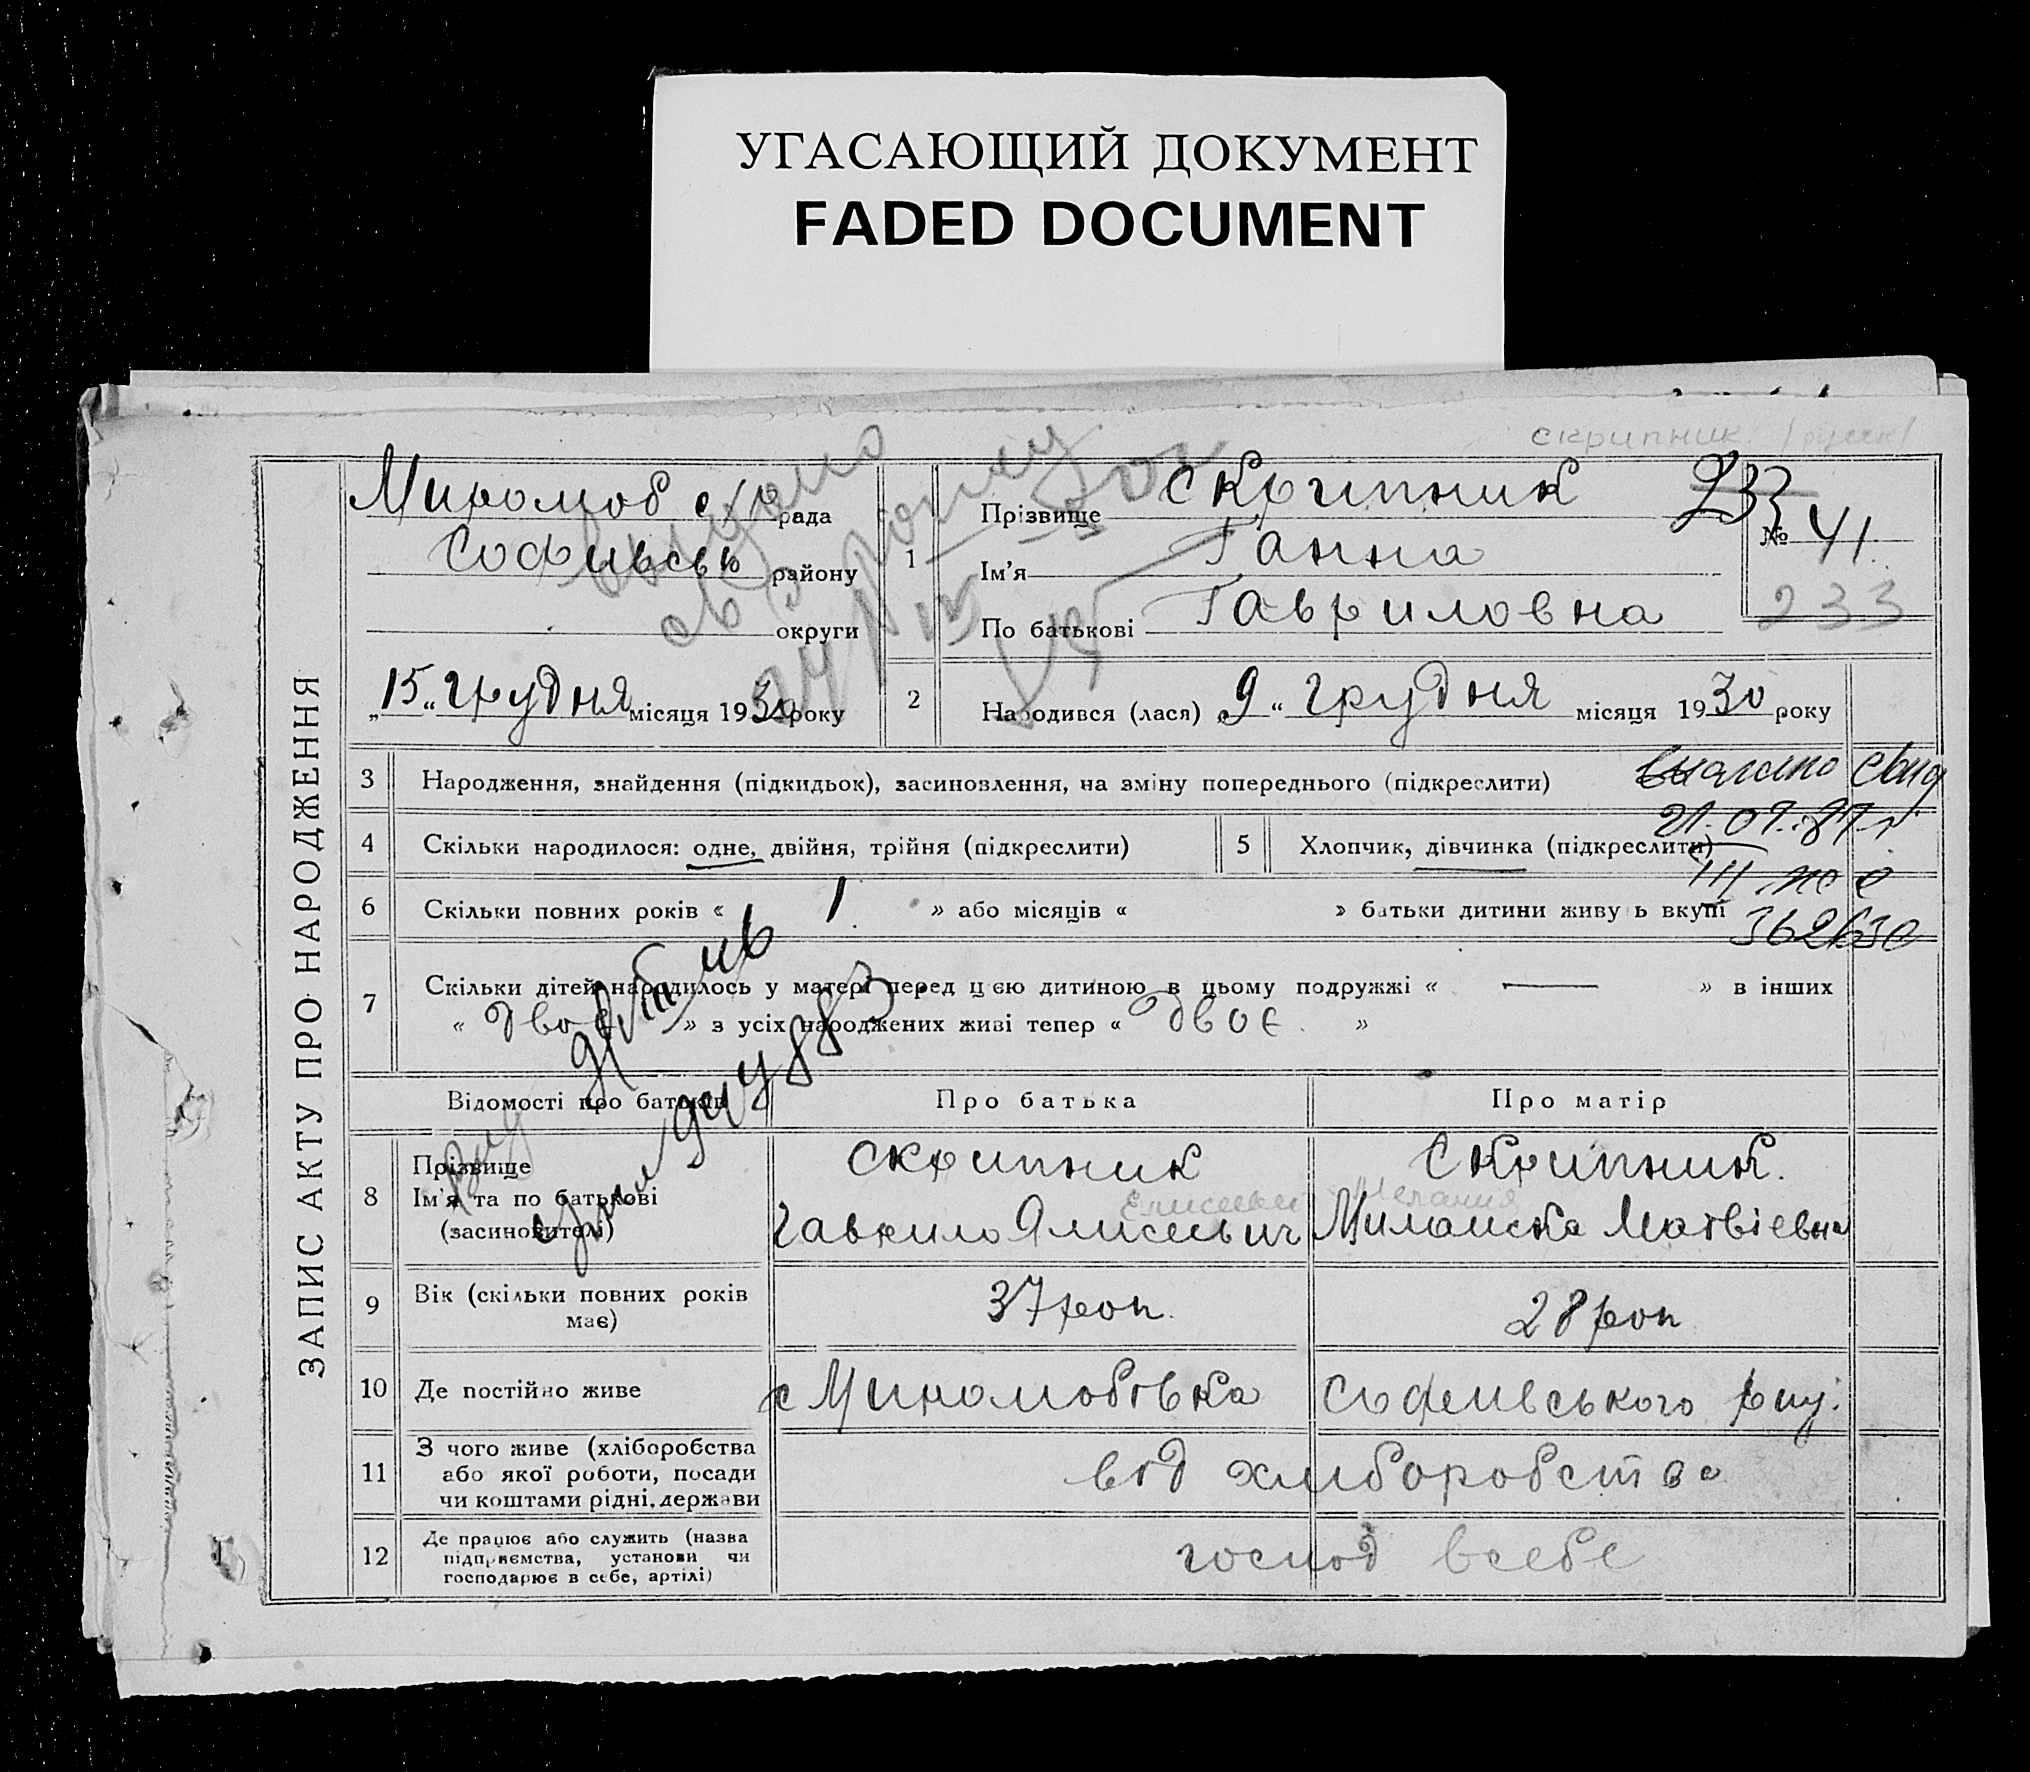 УГАСАЮЩИЙ ДОКУМЕНТ
FADED DOCUMENT
скрипник
ЗАПИС АКТУ ПРО НАРОДЖЕННЯ
рада
району
округи
„15“ грудня місяця 1930 року
1
Прізвище Скрипник
Ім’я Ганна
По батькові Гавриловна
233
№ 41.
233
2
Народився (лася) „9“ грудня місяця 1930 року
3 Народження, знайдення (підкидьок), засиновлення, на зміну попереднього (підкреслити)
4 Скільки народилося: одне, двійня, трійня (підкреслити)
5 Хлопчик, дівчинка (підкреслити)
21.07.87 г.
III
362630
6 Скільки повних років « 1 » або місяців « » батьки дитини живуть вкупі
7 Скільки дітей народилось у матері перед цією дитиною в цьому подружжі « — » в інших
« двоє » з усіх народжених живі тепер « двоє »
Відомості про батьків
Про батька
Про матір
8 Прізвище
Ім’я та по батькові
(засиновителі)
Скрипник
Гаврило
Скрипник.
Матвіевна
9 Вік (скільки повних років
має)
37 рок.
28 рок
10 Де постійно живе
Софиевського
11 З чого живе (хліборобства
або якої роботи, посади
чи коштами рідні, держави
від хлиборобства
12 Де працює або служить (назва
підприємства, установи чи
господарює в себе, артілі)
господ всебе